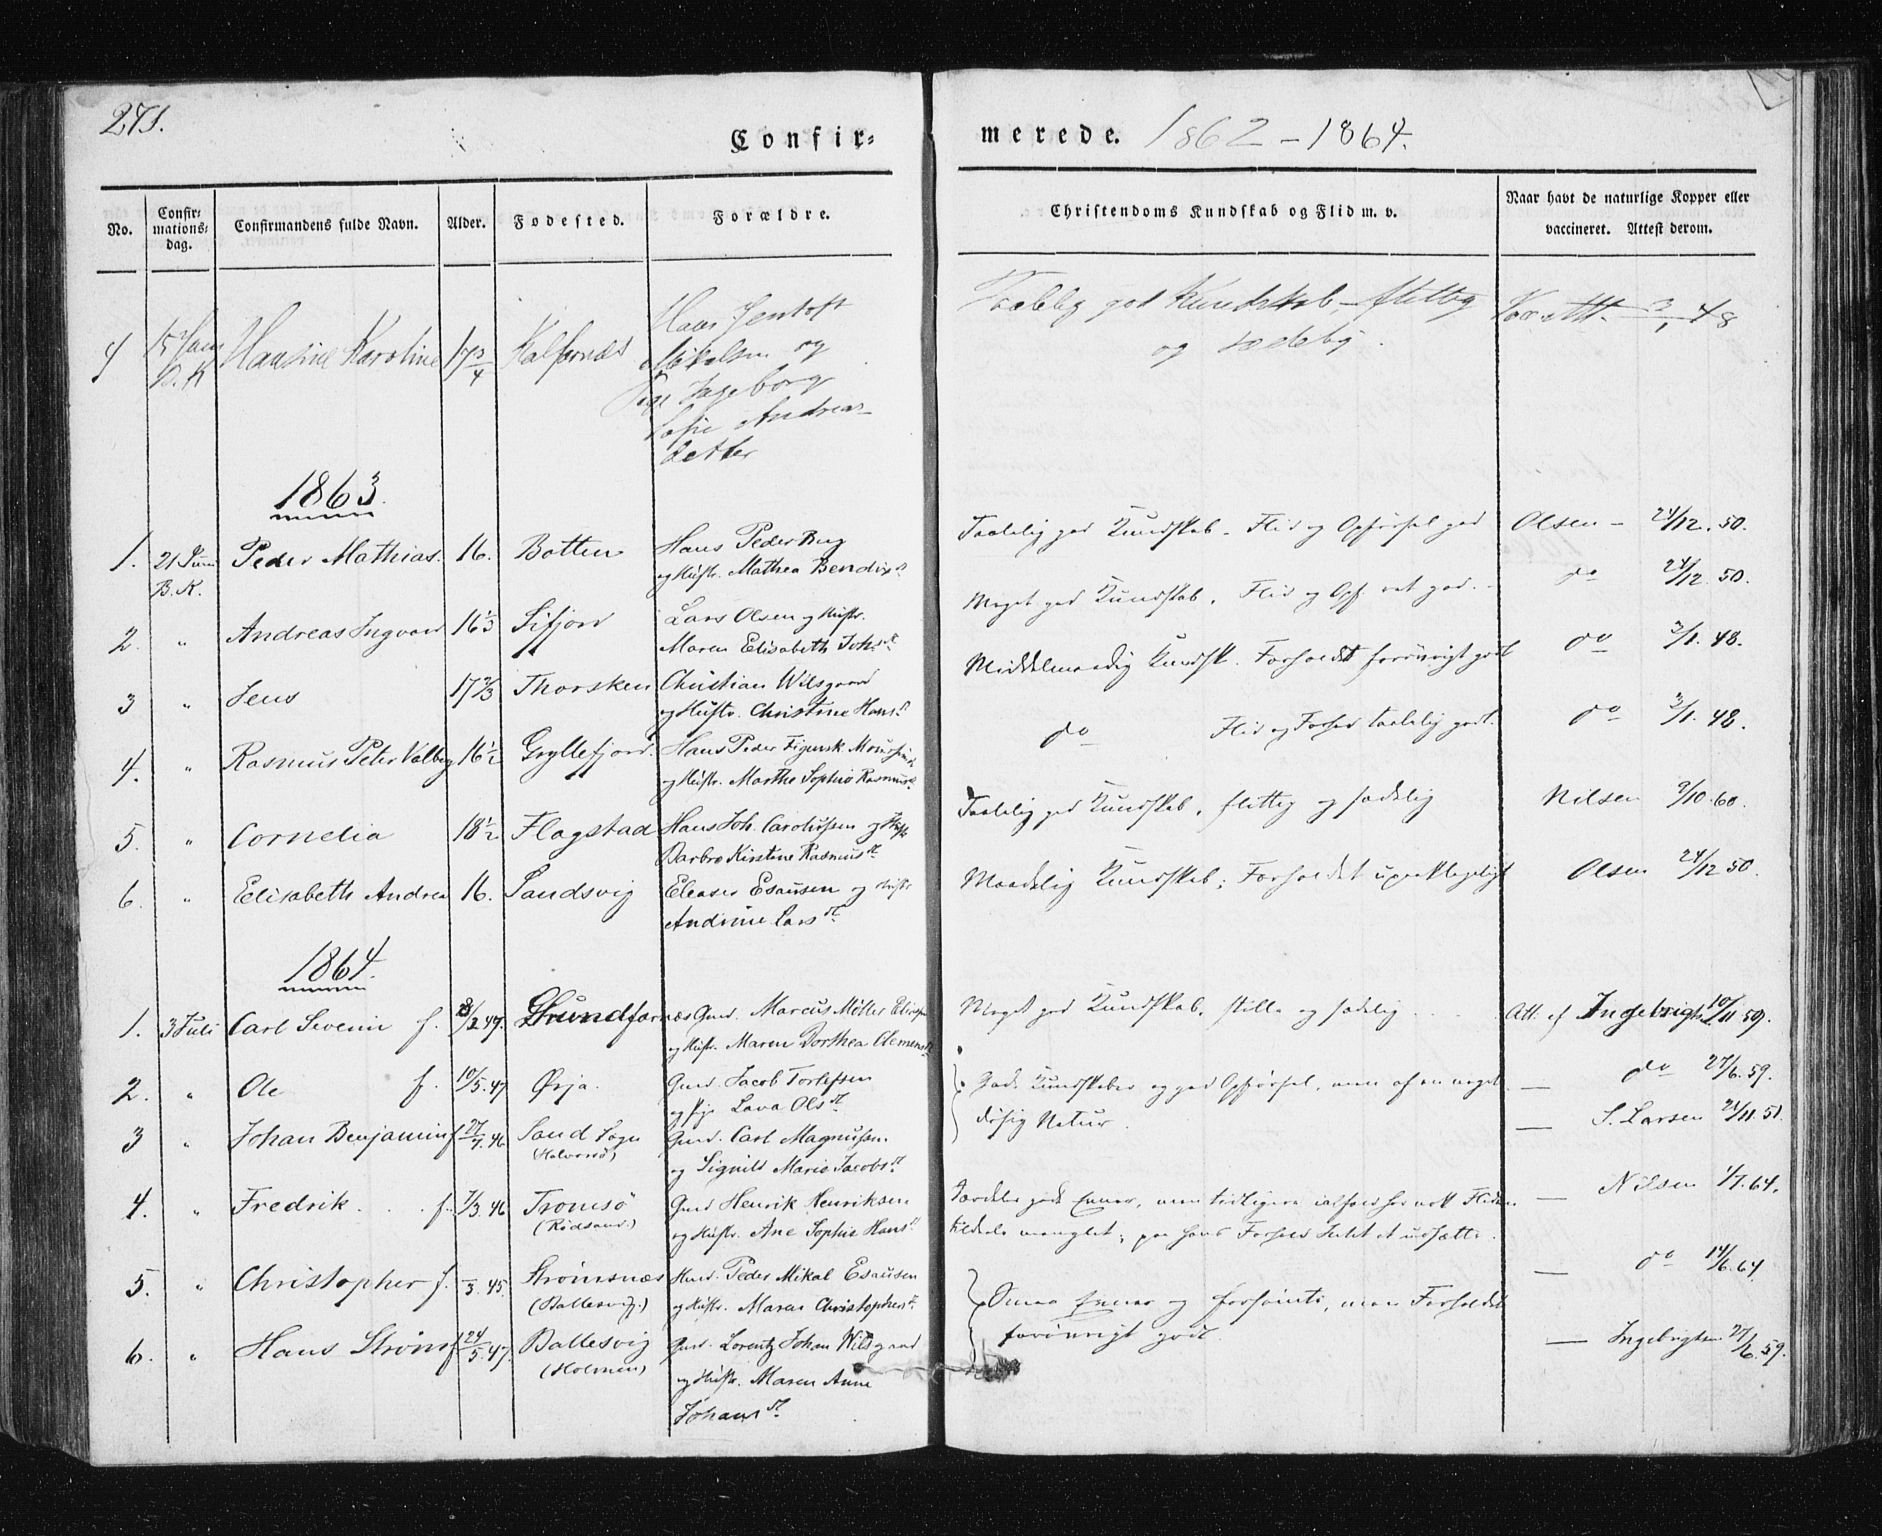 271.
Confir=
merede. 1862 - 1864.
No.
Confir=
mations=
dag.
Confirmandens fulde Navn.
Alder.
Fødested.
Forældre.
Christendoms Kundskab og Flid m. v.
Naar havt de naturlige Kopper eller
vaccineret. Attest derom.
Hansine Karoline 17 3/4 Kalfarnæs Hans Jentoft
Mikalsen og
Pige Ingeborg
Sofie Andreas-
detter
B. K
Taalelig god Kundskab, flittig
og sædelig.
3/1 48
1863.
1. 21 Juni Peder Mathias. 16. Botten Hans Peder Berg
B. K. og Hustr. Mathea Bendixdt.
Taalelig god Kundskab. Flid og Opførsel god Olsen - 24/12. 50.
2. " Andreas Ingvard 16 1/3 Sifjord Lars Olsen og Hustr.
Maren Elisabeth Johsdt.
Meget god Kundskab, Flid og Opf. ret god. do 24/12. 50.
3 " Jens 17 2/3 Thorsken Christian Wilsgaard
og Hustr. Christine Hansdt.
Middelmaadig Kundsk. Forholdet forøvrigt godt do 3/1. 48.
4. " Rasmus Peter Valberg 16 1/2 Gryllefjord. Hans Peder
og Hustr. Marthe Sophie Rasmusdt.
do Flid og Forhold taalelig godt. do 3/1. 48.
5. " Cornelia 18 1/2 Flagstad Hans Joh. Carolussen og Hustr
Barbro Kirstine Rasmusdt.
Taalelig god Kundskab, flittig og sædelig Nilsen 9/10. 60.
6. " Elisabeth Andrea 16. Sandsvig Eleaser Esausen og Hustr
Andrine Larsdt.
Maadelig Kundskab; Forholdet upaaklageligt Olsen 24/12 50.
1864.
1. 3 Juli Carl Severin f. 28/2 47. Grundfarnæs Gmd. Marcus Möller
og Hustr. Maren Dorthea Clemensdt.
Meget god Kundskab, stille og sædelig Att. af Ingebrigts. 10/11 59.
2. " Ole f. 10/5. 47 Ørja. Gmd. Jacob Torlefsen
og Pige Lava Olsdt.
Gode Kundskaber og god Opførsel, men af en noget
døsig Natur.
— do 27/6. 59.
3 " Johan Benjamin f 27/7. 46 Sand Sogn Gmd. Carl Magnussen
og Signild Marie Jacobsdt.
— S. Larsen 24/11. 51.
4. " Fredrik f. 7/3. 46 Tromsö Gmd Henrik Henriksen
(Rödsand.) og Hustr. Ane Sophie Hansdt.
Særdeles gode Evner, men tidligere
manglet; paa hans Forhold Intet at udsætte.
— Nilsen 1/7. 64.
5. " Christopher f. /3. 45. Strömsnæs Husd. Peder Mikal Esausen
(Ballesvig.) og Hustr. Maren Christophersdt.
— do 14/6. 64.
6. " Hans Ström f 24/5. 47. Ballesvig Gmd. Lorentz Johan Wilsgaard
(Holmen) og Hustr. Maren Anne
Johansdt.
Svage Evner og forsömt, men Forholdet
forövrigt godt.
— Ingebrigtsen 27/6. 59.